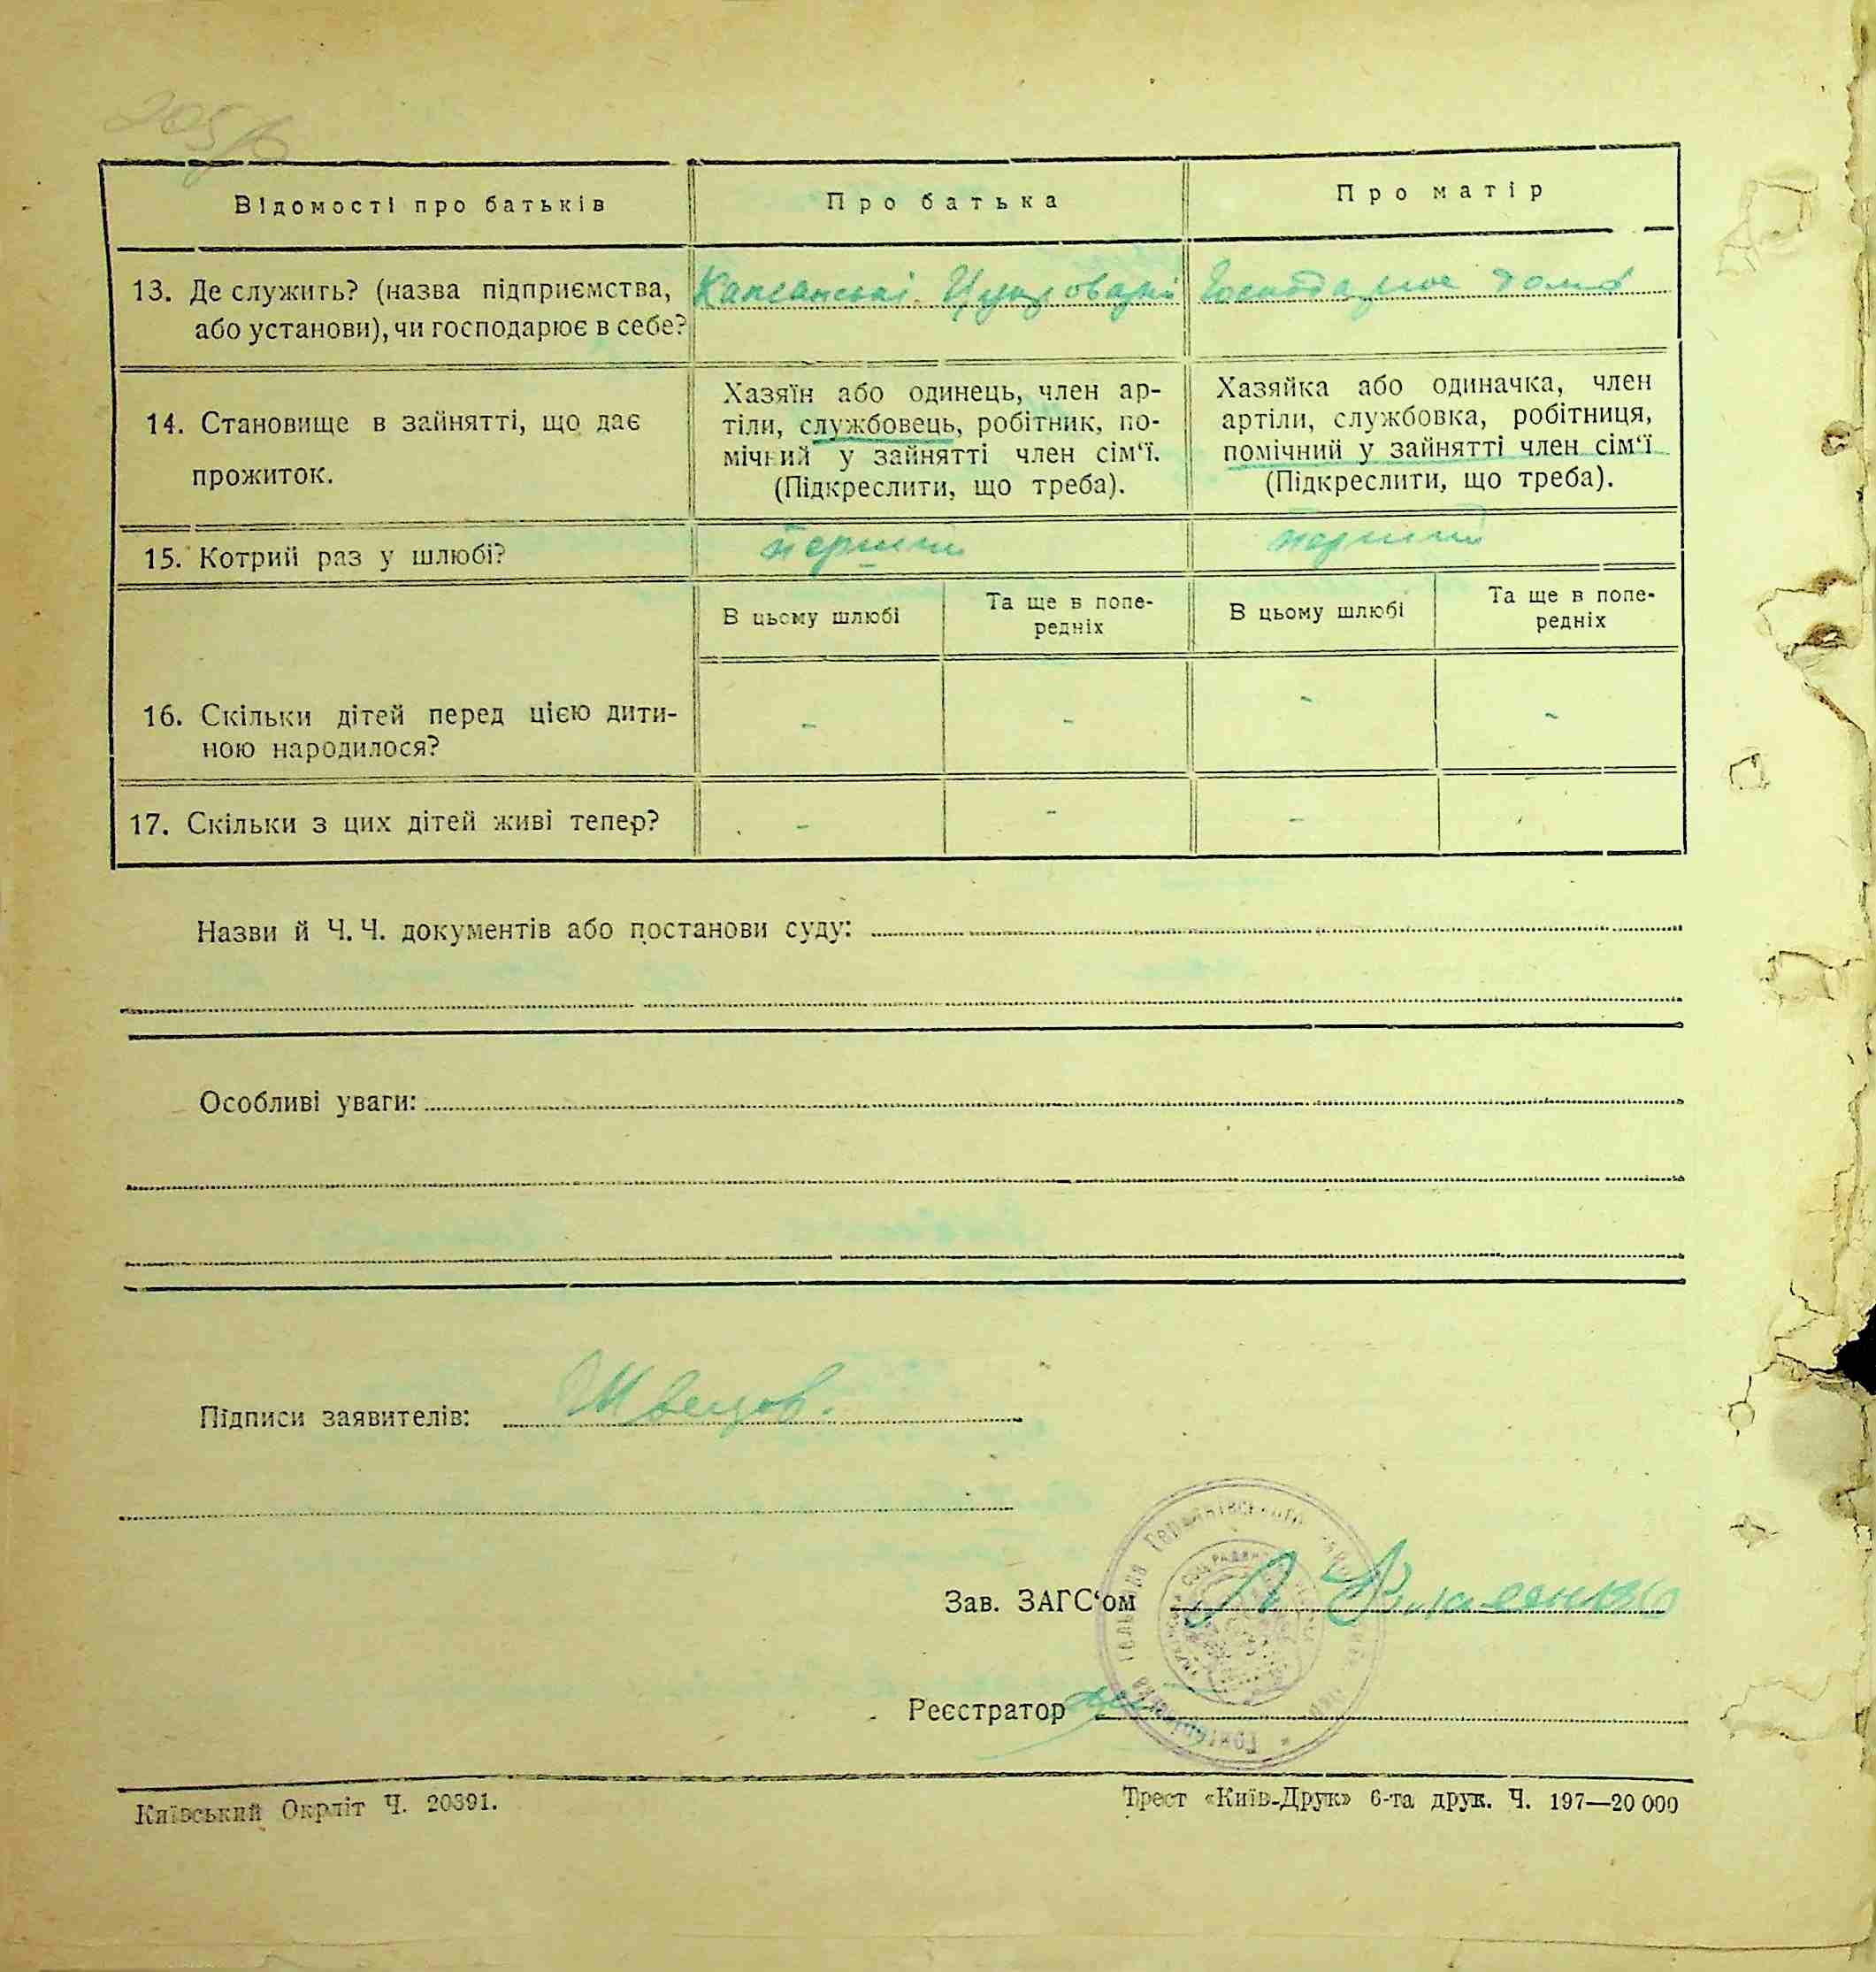 205/в
Відомості про батьків
Про батька
Про матір
13. Де служить? (назва підприємства,
або установи), чи господарює в себе?
Цукроварні
Господарює дома
14. Становище в зайнятті, що дає
прожиток.
Хазяїн або одинець, член ар-
тіли, службовець, робітник, по-
мічний у зайнятті член сім‘ї.
(Підкреслити, що треба).
Хазяйка або одиначка, член
артіли, службовка, робітниця,
помічний у зайнятті член сім‘ї
(Підкреслити, що треба).
15. Котрий раз у шлюбі?
перший
перший
В цьому шлюбі
Та ще в попе-
редніх
В цьому шлюбі
Та ще в попе-
редніх
16. Скільки дітей перед цією дити-
ною народилося?
- - - -
17. Скільки з цих дітей живі тепер?
- - -
Назви й Ч. Ч. документів або постанови суду:
Особливі уваги:
Підписи заявителів: Швецов.
Зав. ЗАГС‘ом
Реєстратор
Київський Окрліт Ч. 20391.
Трест «Київ-Друк» 6-та друк. Ч. 197—20 000